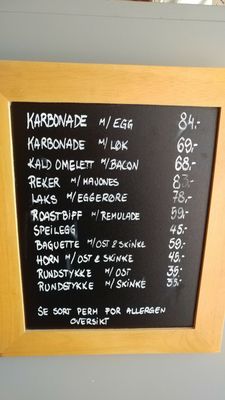 KARBONADE M/EGG 84.-
KARBONADE M/LØK 69.-
KALD OMELETT M/BACON 68.-
REKER M/MAJONES 83.-
LAKS M/EGGERØRE 78.-
ROASTBIFF M/REMULADE 59.-
SPEILEGG 45.-
BAGUETTE M/OST & SKINKE 59.-
HORN M/OST & SKINKE 45.-
RUNDSTYKKE M/OST 35.-
RUNDSTYKKE M/SKINKE 35.-
SE SORT PERM FOR ALLERGEN
OVERSIKT